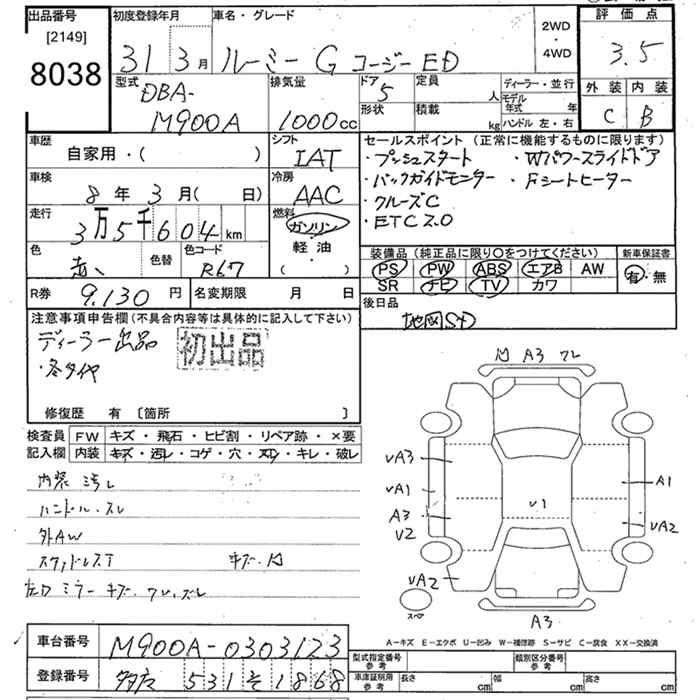 出品番号
[2149]
8038
初度登録年月
31 3月
車名・グレード
ルーミー G コージーED
2WD
・
4WD
評価点
3.5
外装 内装
C B
型式
DBA-
M900A
排気量
1000cc
ドア
5
定員
人
形状
積載
kg
ディーラー・並行
モデル年式 年
ハンドル 左・右
車歴
自家用・( )
シフト
IAT
車検
8年 3月( 日)
冷房
AAC
走行
3万5千604km
燃料
ガソリン
軽油
( )
色
色替
色コード
R67
R券 9,130円
名変期限 月 日
セールスポイント (正常に機能するものに限ります)
・プッシュスタート ・Wパワースライドドア
・バックガイドモニター ・Fシートヒーター
・クルーズC
・ETC2.0
装備品(純正品に限り○をつけてください)
PS PW ABS エアB AW
SR ナビ TV カワ
新車保証書
有・無
後日品
地図SD
注意事項申告欄(不具合内容等は具体的に記入して下さい)
ディーラー出品
初出品
・冬タイヤ
修復歴 有 〔箇所 〕
検査員記入欄
FW キズ・飛石・ヒビ割・リペア跡・×要
内装 キズ・汚レ・コゲ・穴・スレ・キレ・破レ
内装汚レ
ハンドル・スレ
外AW
スタッドレスT
左ドミラーキズ・ワレ・ズレ
A3 ワレ
VA3
VA1
A3
V2
VA2
V1
A1
VA2
A3
スペア
A－キズ E－エクボ U－凹み W－補修跡 S－サビ C－腐食 XX－交換済
車台番号 M900A-0303123
登録番号 531 そ 1868
型式指定番号
参考
類別区分番号
参考
車庫証明用
参考
長さ cm
幅 cm
高さ cm